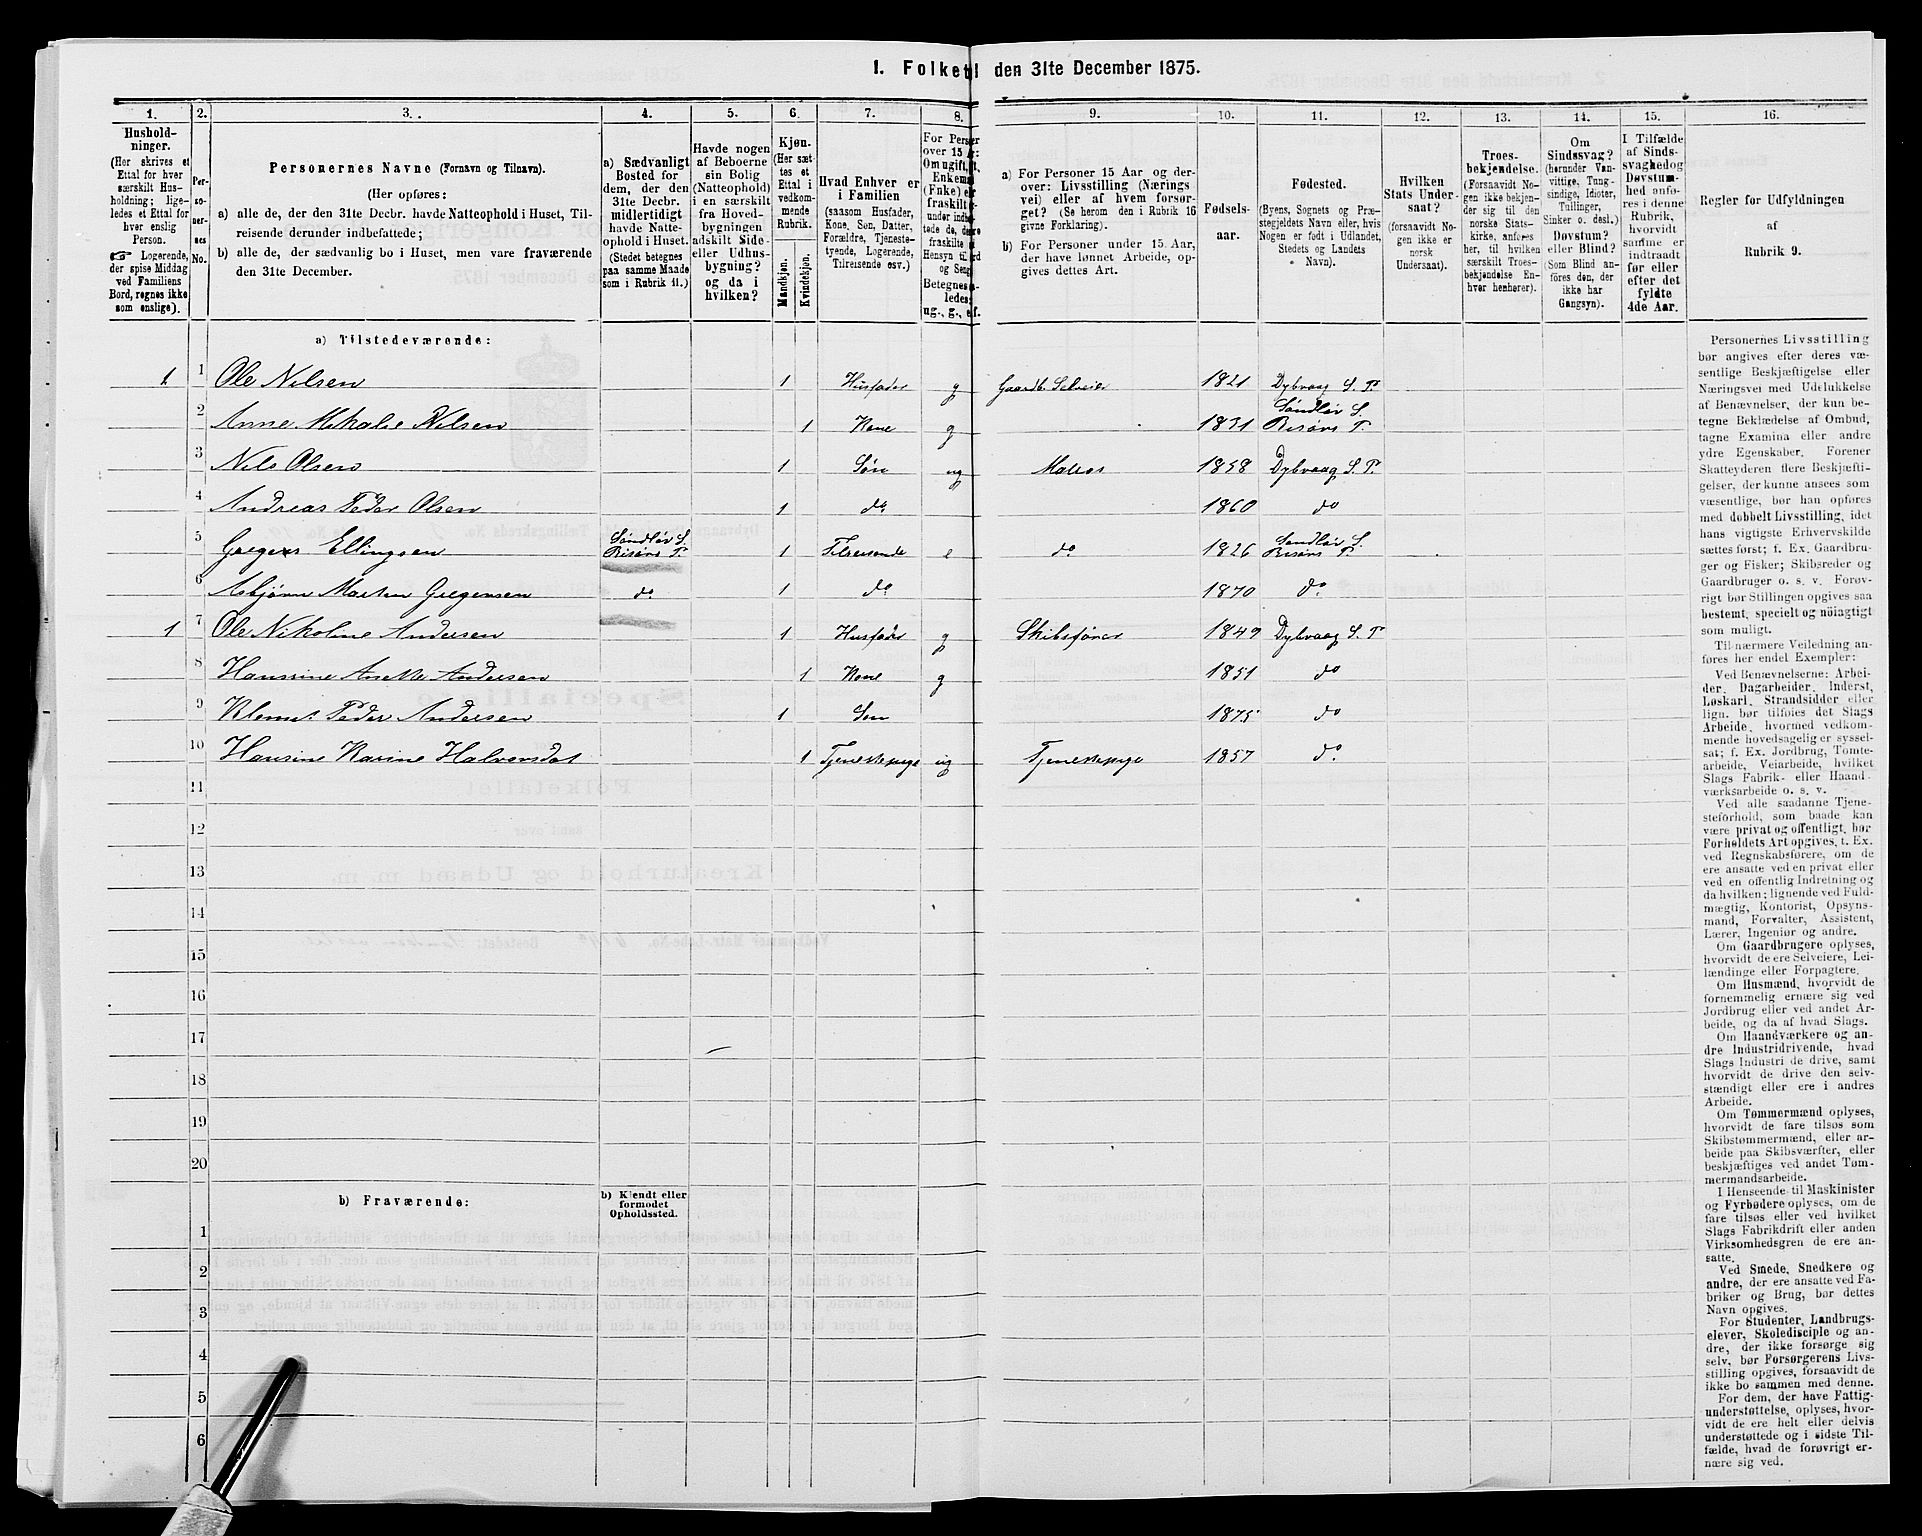 1. Folket den 31te December 1875.
1. 2. 3. 4. 5. 6. 7. 8. 9. 10. 11. 12. 13. 14. 15. 16.
Hushold-
ninger.
(Her skrives et
Ettal for hver
særskilt Hus-
holdning; lige-
ledes et Ettal for
hver enslig
Person.
☞ Logerende,
der spise Middag
ved Familiens
Bord, regnes ikke
som enslige).
Per-
so-
ner-
nes
No.
Personernes Navne (Fornavn og Tilnavn).
(Her opføres:
a) alle de, der den 31te Decbr. havde Natteophold i Huset, Til-
reisende derunder indbefattede;
b) alle de, der sædvanlig bo i Huset, men vare fraværende
den 31te December.
a) Sædvanligt
Bosted for
dem, der den
31te Decbr.
midlertidigt
havde Natte-
ophold i Huset.
(Stedet betegnes
paa samme Maade
som i Rubrik 11.)
Havde nogen
af Beboerne
sin Bolig
(Natteophold)
i en særskilt
fra Hoved-
bygningen
adskilt Side-
eller Udhus-
bygning?
og da i
hvilken?
Kjøn.
(Her sæt-
tes et
Ettal i
vedkom-
mende
Rubrik.
Mandkjøn.
Kvindekjøn.
Hvad Enhver er
i Familien
(saasom Husfader,
Kone, Søn, Datter,
Forældre, Tjeneste-
tyende, Logerende,
Tilreisende osv.)
For Perso
over 15
Om ugift,
Enkema
(Fnke)
fraskilt
under
tede de,
fraskilte
Hensyn til
og Seng
Betegnes
ledes:
ug., g., e
a) For Personer 15 Aar og der-
over: Livsstilling (Nærings
vei) eller af hvem forsør-
get? (Se herom den i Rubrik 16
givne Forklaring).
b) For Personer under 15. Aar,
der have lønnet Arbeide, op-
gives dettes Art.
Fødsels-
aar.
Fødested.
(Byens, Sognets og Præ-
stegjeldets Navn eller, hvis
Nogen er født i Udlandet,
Stedets og Landets
Navn).
Hvilken
Stats Under-
saat?
(forsaavidt No-
gen ikke er
norsk
Undersaat).
Troes-
bekjendelse.
(Forsaavidt No-
gen ikke bekjen-
der sig til den
norske Stats-
kirke, anføres
her, til hvilken
særskilt Troes-
bekjendelse En-
hver henhører).
Om
Sindssvag?
(herunder Van-
vittige, Tung-
sindige, Idioter,
Tullinger,
Sinker o. desl.)
Døvstum?
eller Blind?
(Som Blind an-
føres den, der
ikke har
Gangsyn).
I Tilfælde
af Sinds-
svaghed og
Døvstum-
hed anfø-
res i denne
Rubrik,
hvorvidt
samme er
indtraadt
før eller
efter det
fyldte
4de Aar.
Regler for Udfyldningen
af
Rubrik 9.
a) Tilstedeværende:
1 1 Ole Nilsen 1 Husfader g Gaardb. Selveier 1821 Dybvaag S. P.
2 Anne Mikalie Nilsen 1 Kone g 1831 Søndløv S. Risørs P.
3 Nils Olsen 1 Søn ug Matros 1858 Dybvaag S. P.
4 Andreas Peder Olsen 1 do 1860 do
5 Gregers Ellingsen Søndløv S. Risørs P. 1 Tilreisende e do 1826 Søndløv S. Risørs P.
6 Asbjørn Martin Gregersen do 1 do 1870 do
1 7 Ole Nikoline Andersen 1 Husfader g Skibsfører 1849 Dybvaag S. P
8 Hansine Anette Andersen 1 Kone g 1851 do
9 Klemet Peder Andersen 1 Søn 1875 do
10 Hansine Karine Halvorsdat 1 Tjenestepige ug Tjenestepige 1857 do
11
12
13
14
15
16
17
18
19
20
b) Fraværende:
b) Kjendt eller
formodet
Opholdssted.
1
2
3
4
5
6
Personernes Livsstilling
bør angives efter deres væ-
sentlige Beskjæftigelse eller
Næringsvei med Udelukkelse
af Benævnelser, der kun be-
tegne Beklædelse af Ombud,
tagne Examina eller andre
ydre Egenskaber. Forener
Skatteyderen flere Beskjæfti-
gelser, der kunne ansees som
væsentlige, bør han opføres
med dobbelt Livsstilling, idet
hans vigtigste Erhvervskilde
sættes først; f. Ex. Gaardbru-
ger og Fisker; Skibsreder og
Gaardbruger o. s. v. Forøv-
rigt bør Stillingen opgives saa
bestemt, specielt og nöiagtigt
som muligt.
Til nærmere Veiledning an-
føres her endel Exempler:
Ved Benævnelserne: Arbei-
der, Dagarbeider, Inderst,
Løskarl, Strandsidder eller
lign. bør tilføies det Slags
Arbeide, hvormed vedkom-
mende hovedsagelig er syssel-
sat; f. Ex. Jordbrug, Tomte-
arbeide, Veiarbeide, hvilket
Slags Fabrik- eller Haand-
værksarbeide o. s. v.
Ved alle saadanne Tjene-
steforhold, som baade kan
være privat og offentligt, bør
Forholdets Art opgives, t. Ex.
ved Regnskabsførere, om de
ere ansatte ved en privat eller
ved en offentlig Indretning og
da hvilken; lignende ved Fuld-
mægtig, Kontorist, Opsyns-
mand, Forvalter, Assistent,
Lærer, Ingeniør og andre.
Om Gaardbrugere oplyses,
hvorvidt de ere Selveiere, Lei-
lændinge eller Forpagtere.
Om Husmænd, hvorvidt de
fornemmelig ernære sig ved
Jordbrug eller ved andet Ar-
beide, og da af hvad Slags.
Om Haandværkere og an-
dre Industridrivende, hvad
Slags Industri de drive, samt
hvorvidt de drive den selv-
stændigt eller ere i andres
Arbeide.
Om Tømmermænd oplyses,
hvorvidt de fare tilsøs som
Skibstømmermænd, eller ar-
beide paa Skibsværfter, eller
beskjæftiges ved andet Tøm-
mermandsarbeide.
I Henseende til Maskinister
og Fyrbødere oplyses, om de
fare tilsøs eller ved hvilket
Slags Fabrikdrift eller anden
Virksomhedsgren de ere an-
satte.
Ved Smede, Snedkere og
andre, der ere ansatte ved Fa-
briker og Brug, bør dettes
Navn opgives.
For Studenter, Landbrugs-
elever, Skoledisciple og an-
dre, der ikke forsørge sig
selv, bør Forsørgerens Livs-
stilling opgives, forsaavidt de
ikke bo sammen med denne.
For dem, der have Fattig-
understøttelse, oplyses, hvor-
vidt de ere helt eller delvis
understøttede og i sidste Til-
fælde, hvad de forøvrigt er-
nære sig ved.